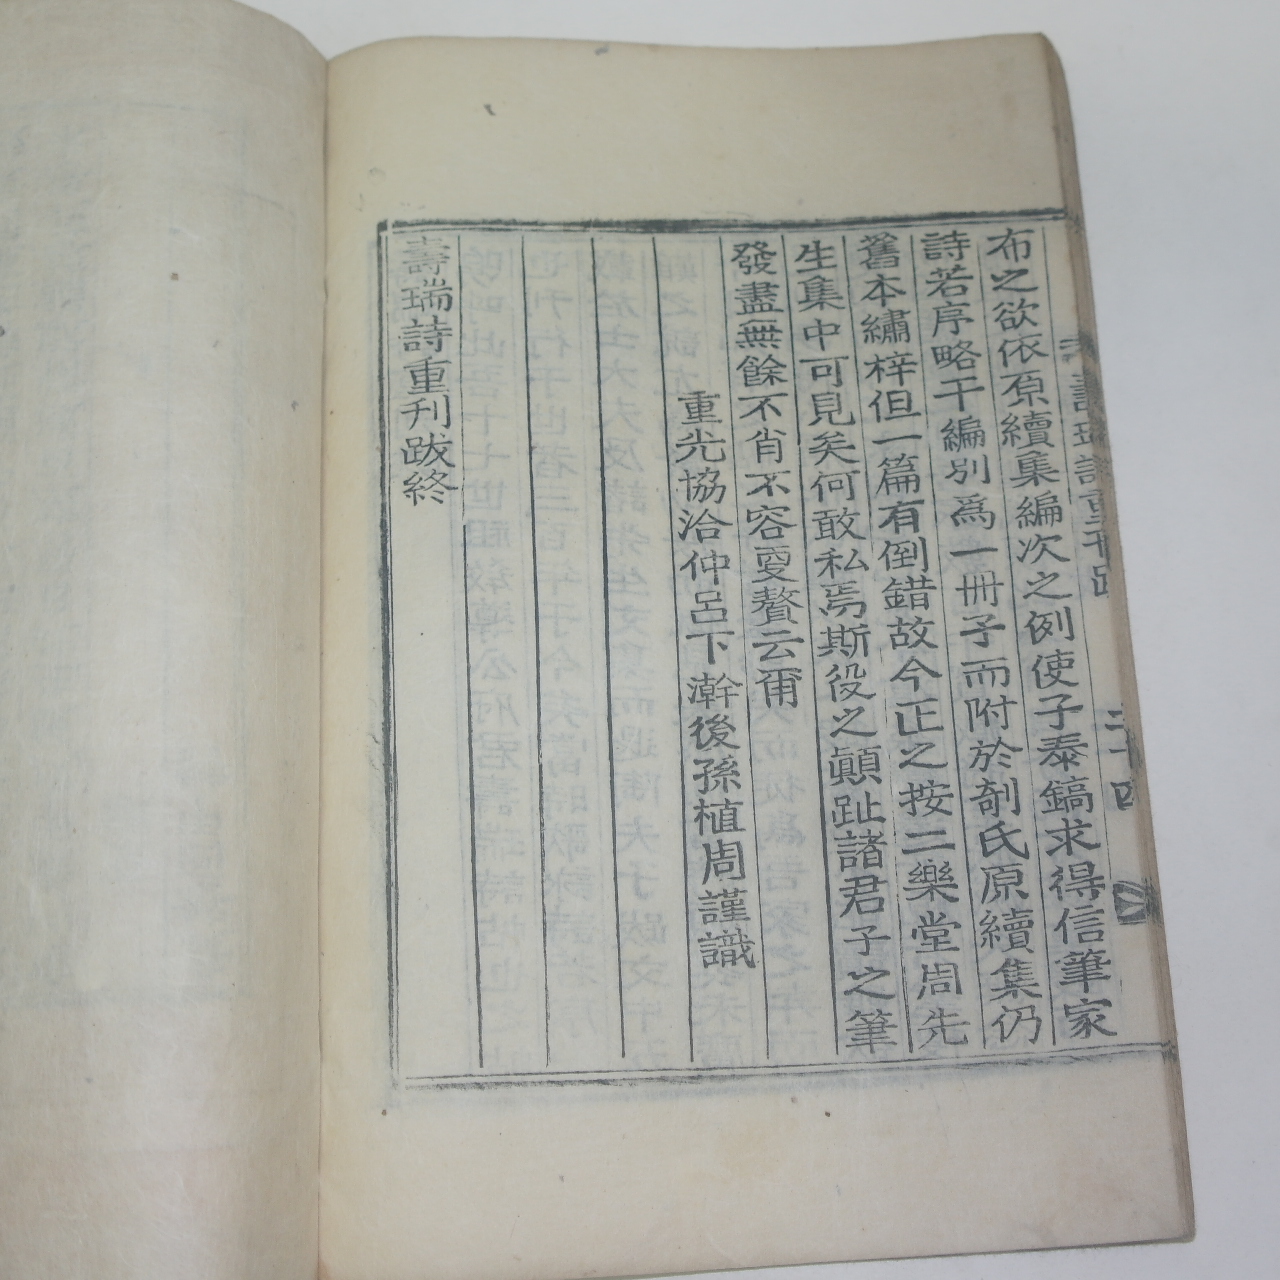 布之欲依原續集編次之例使子泰鎬求得信筆家
詩若序略干編別爲一冊子而附於剞氏原續集仍
舊本繡梓但一篇有倒錯故今正之按二樂堂周先
生集中可見矣何敢私焉斯役之顚趾諸君子之筆
發盡無餘不肖不容更贅云爾
重光協洽仲呂下澣後孫植周謹識
壽瑞詩重刊跋終
壽瑞詩重刊跋
二十四